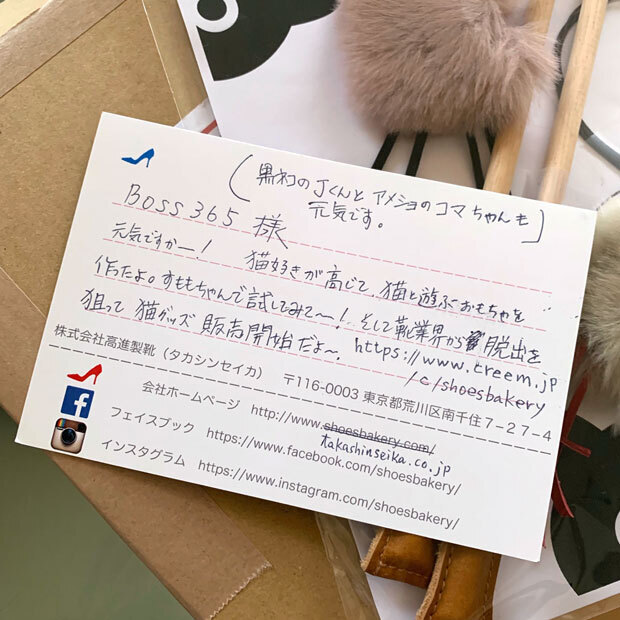 (黒ネコのJくんと アメショのコマちゃんも
元気です。)
Boss365 様
元気ですかー! 猫好きが高じて、猫と遊ぶおもちゃを
作ったよ。すももちゃんで試してみて〜! そして靴業界から脱出を
狙って 猫グッズ 販売開始だよ〜。 https://www.creem.jp
/c/shoesbakery
株式会社高進製靴(タカシンセイカ) 〒116-0003 東京都荒川区南千住7-27-4
会社ホームページ http://www.shoesbakery.com/
takashinseika.co.jp
フェイスブック https://www.facebook.com/shoesbakery/
インスタグラム https://www.instagram.com/shoesbakery/